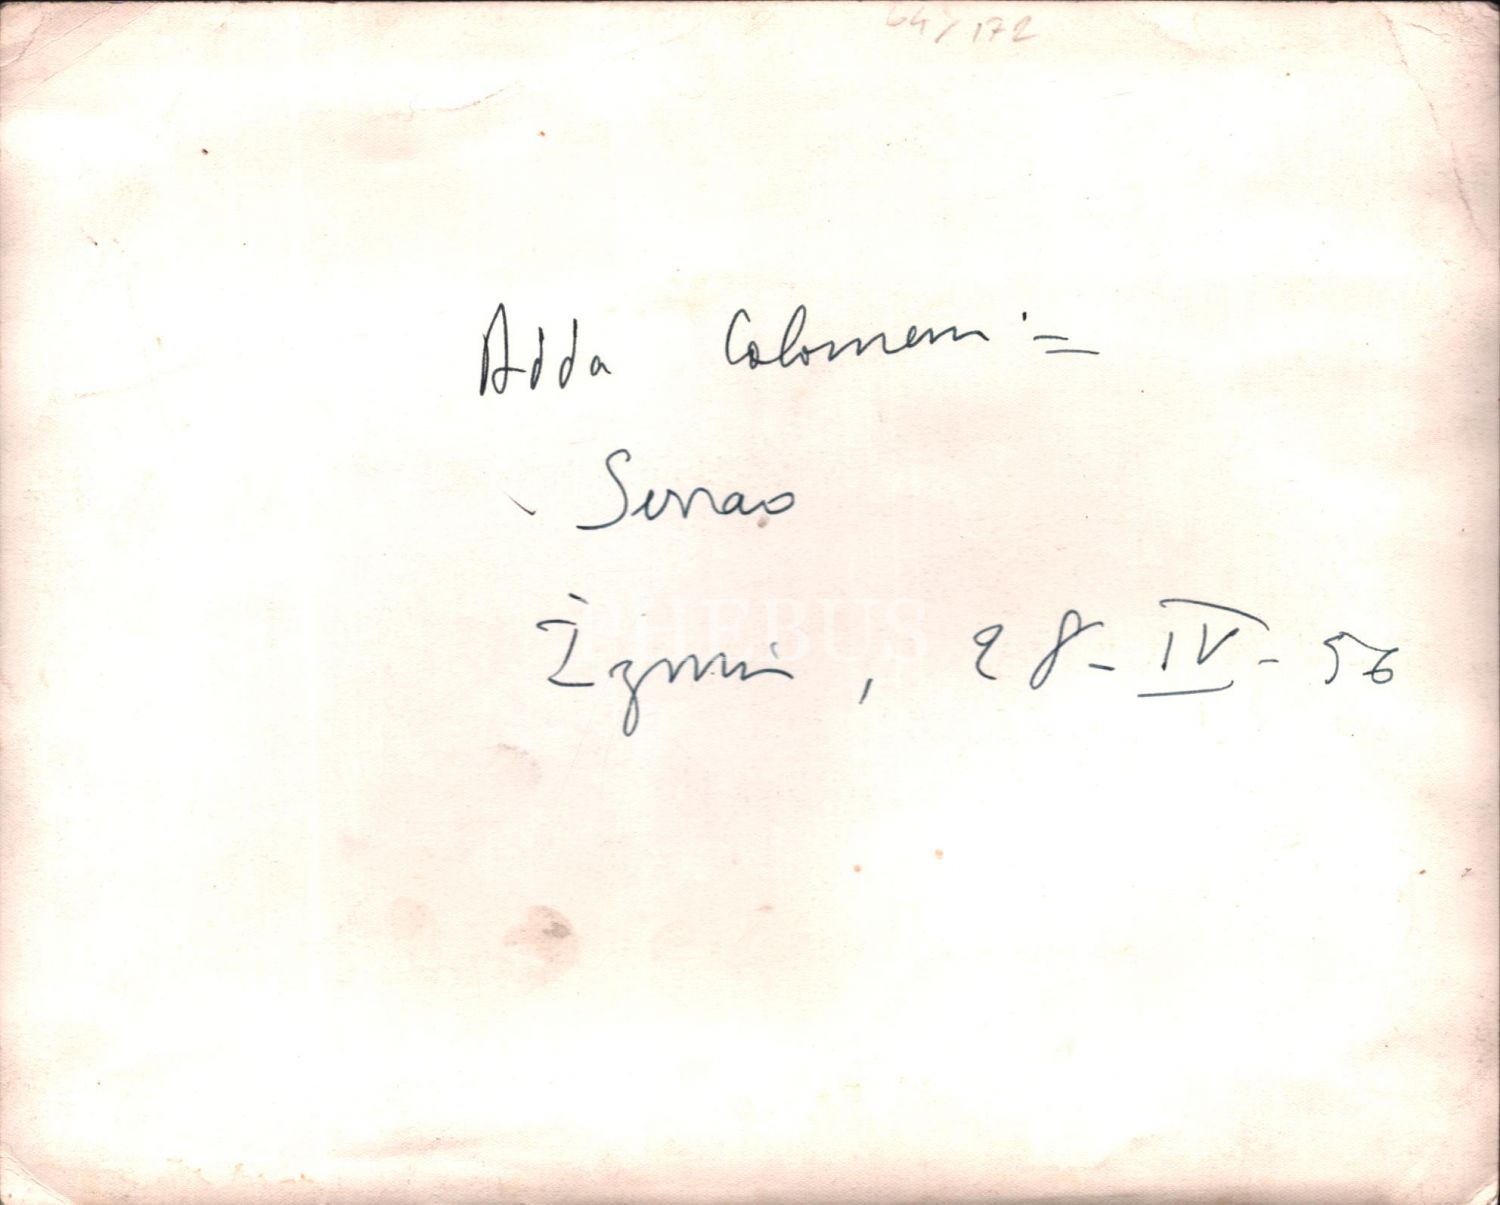 64/172
Adda Colomeni =
Serrao
PHEBUS
İzmir, 28-IV-56